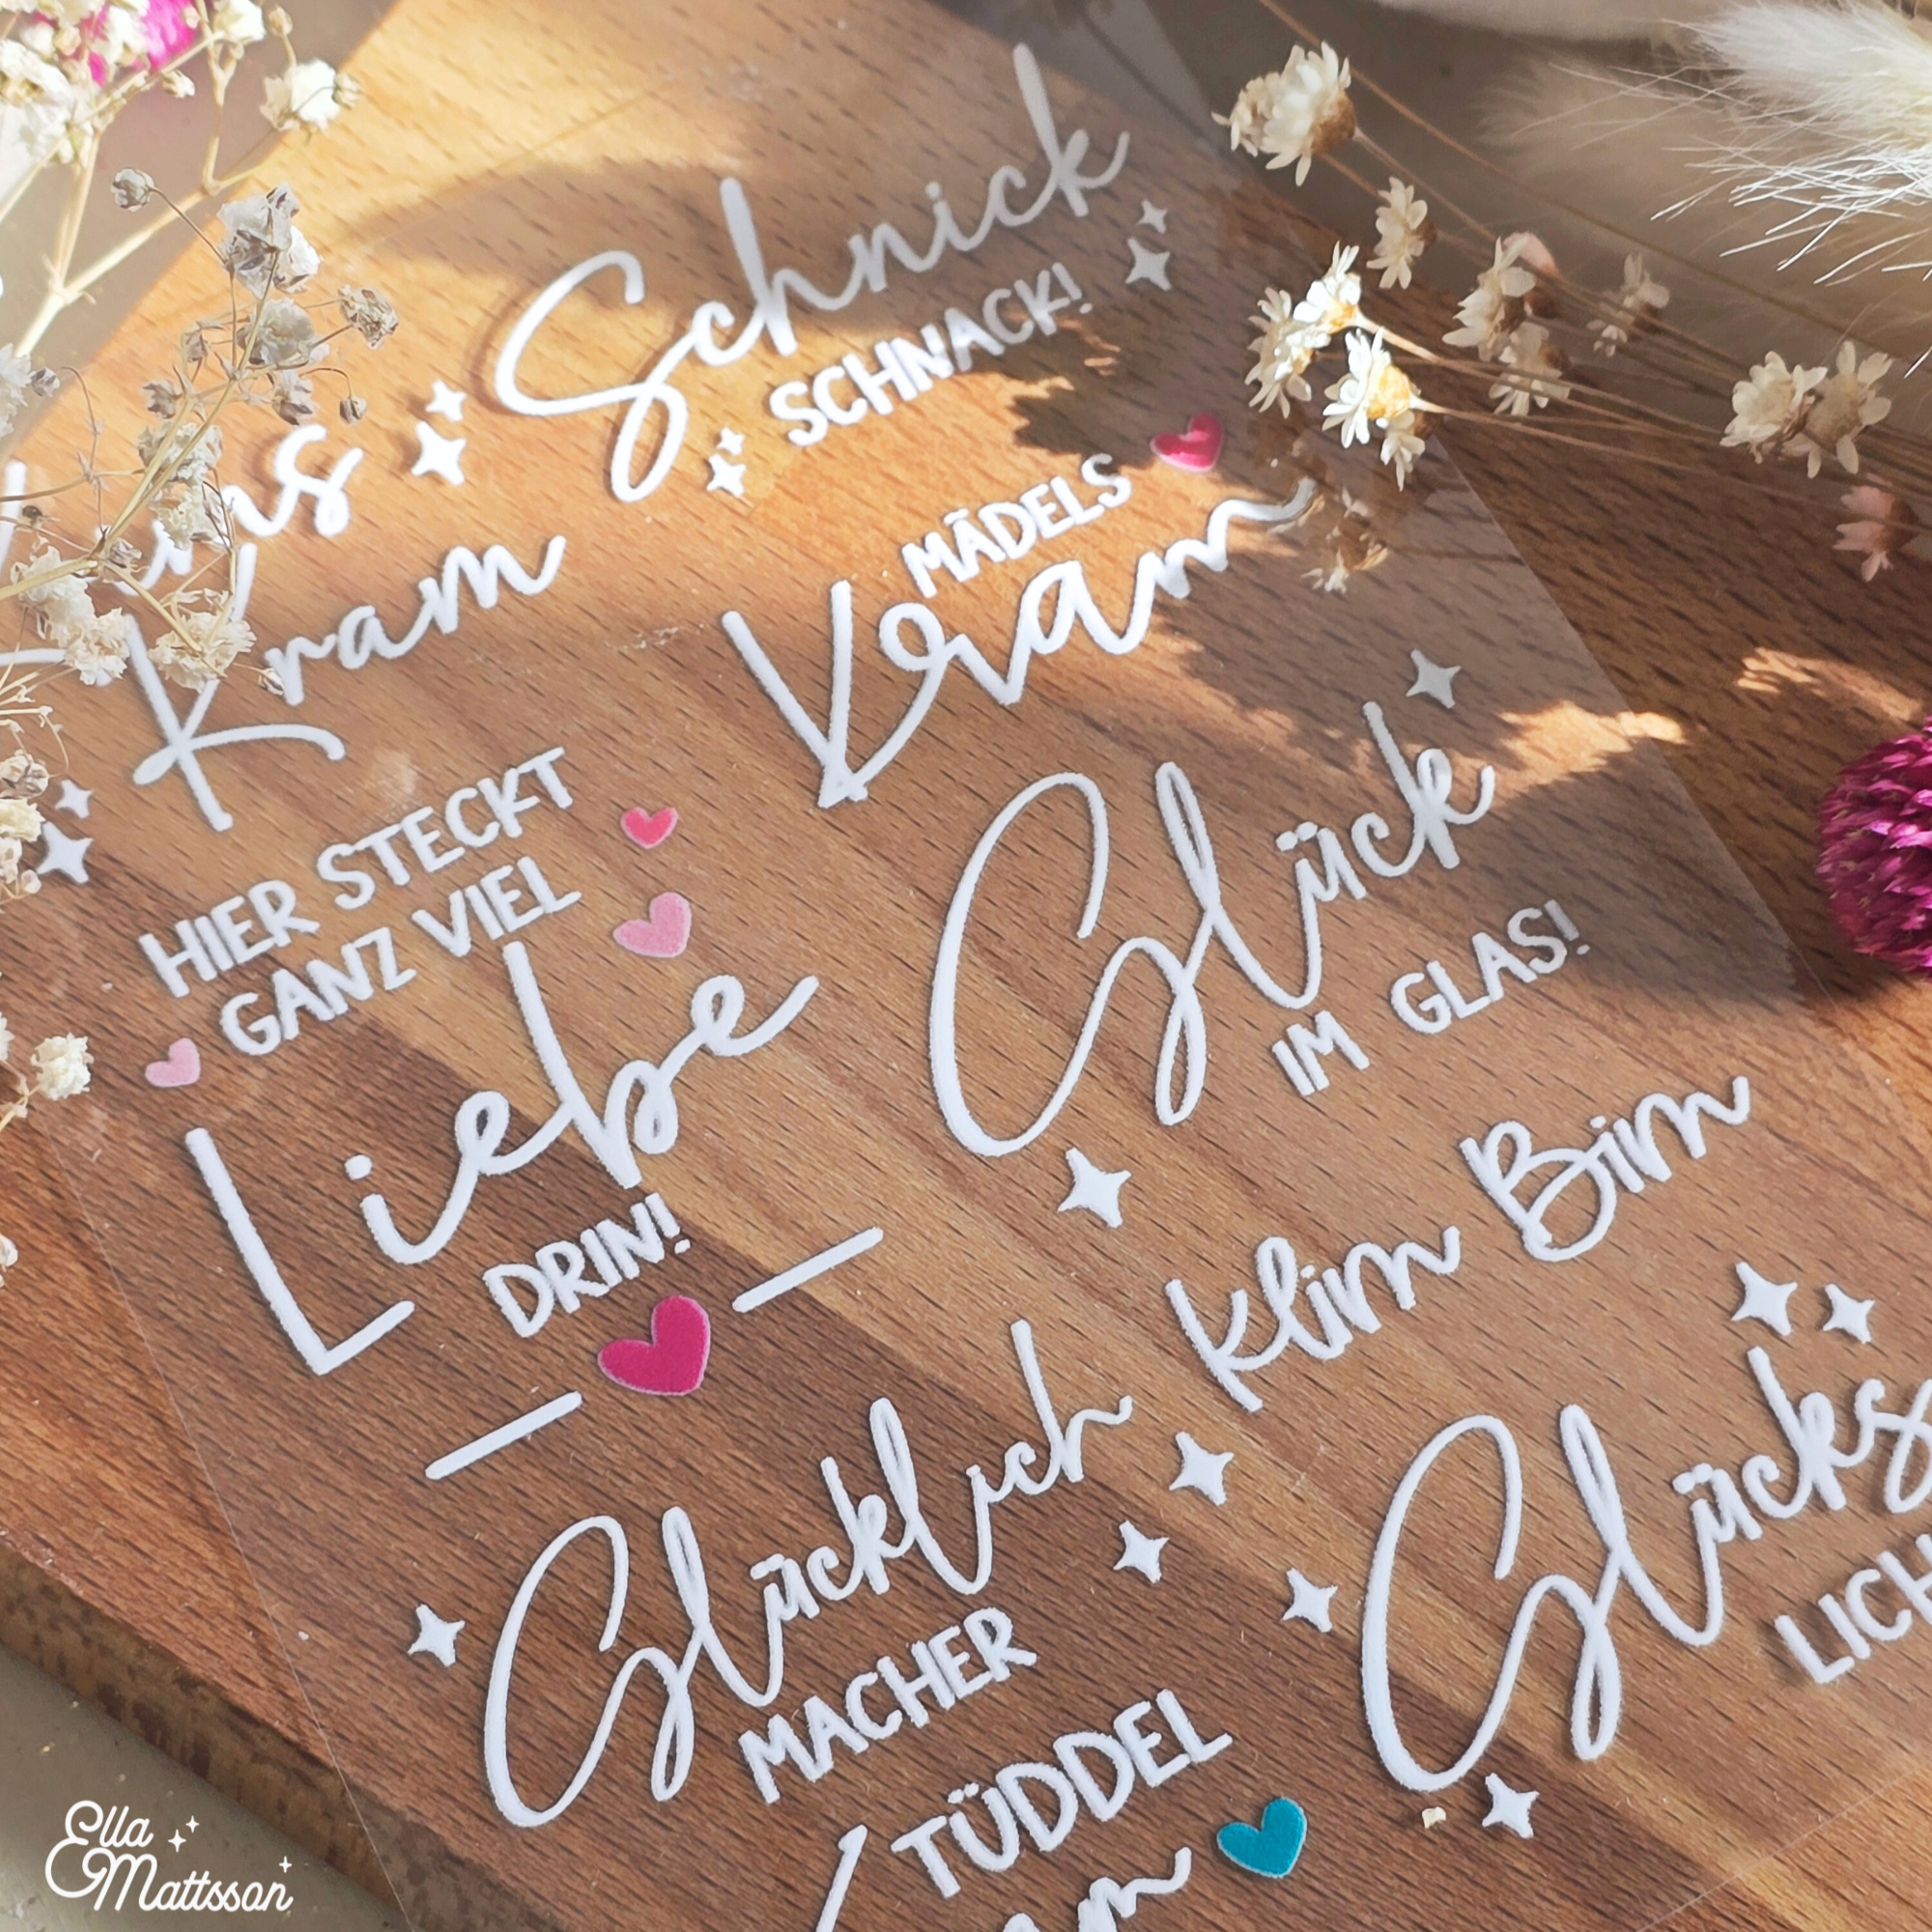 Schnick
SCHNACK!
Kram
MÄDELS
Kram
HIER STECKT
GANZ VIEL
Liebe
DRIN!
Glück
IM GLAS!
Klim Bim
Glücklich
MACHER
Glücks
LICH
TÜDDEL
Ella
Mattsson